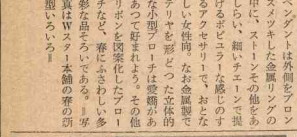 ペンダントは外側をブロン
ズメツキした金属リングの
中に、ストーンその他をあ
しらい、細いチエーンで提
げるポピユラーな感じのす
るアクセサリーで、おとな
しい女性向。なお金属製で
テリヤを形どつた立体的
な小型ブローチは愛嬌があ
あつて好まれよう。その他
リボンを図案化したブロー
チなど、春にふさわしい多
彩な品ぞろいである。＝写
真はＷスター本舗の春の新
型いろいろ＝